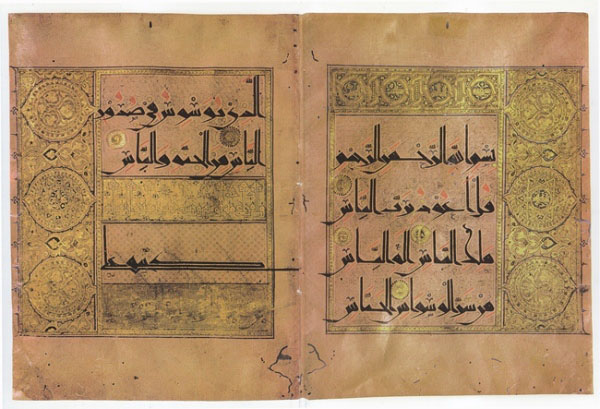 بسم الله الرحمن الرحيم
قل أعوذ برب الناس
ملك الناس إله الناس
من شر الوسواس الخناس
الذي يوسوس في صدور
الناس من الجنة والناس